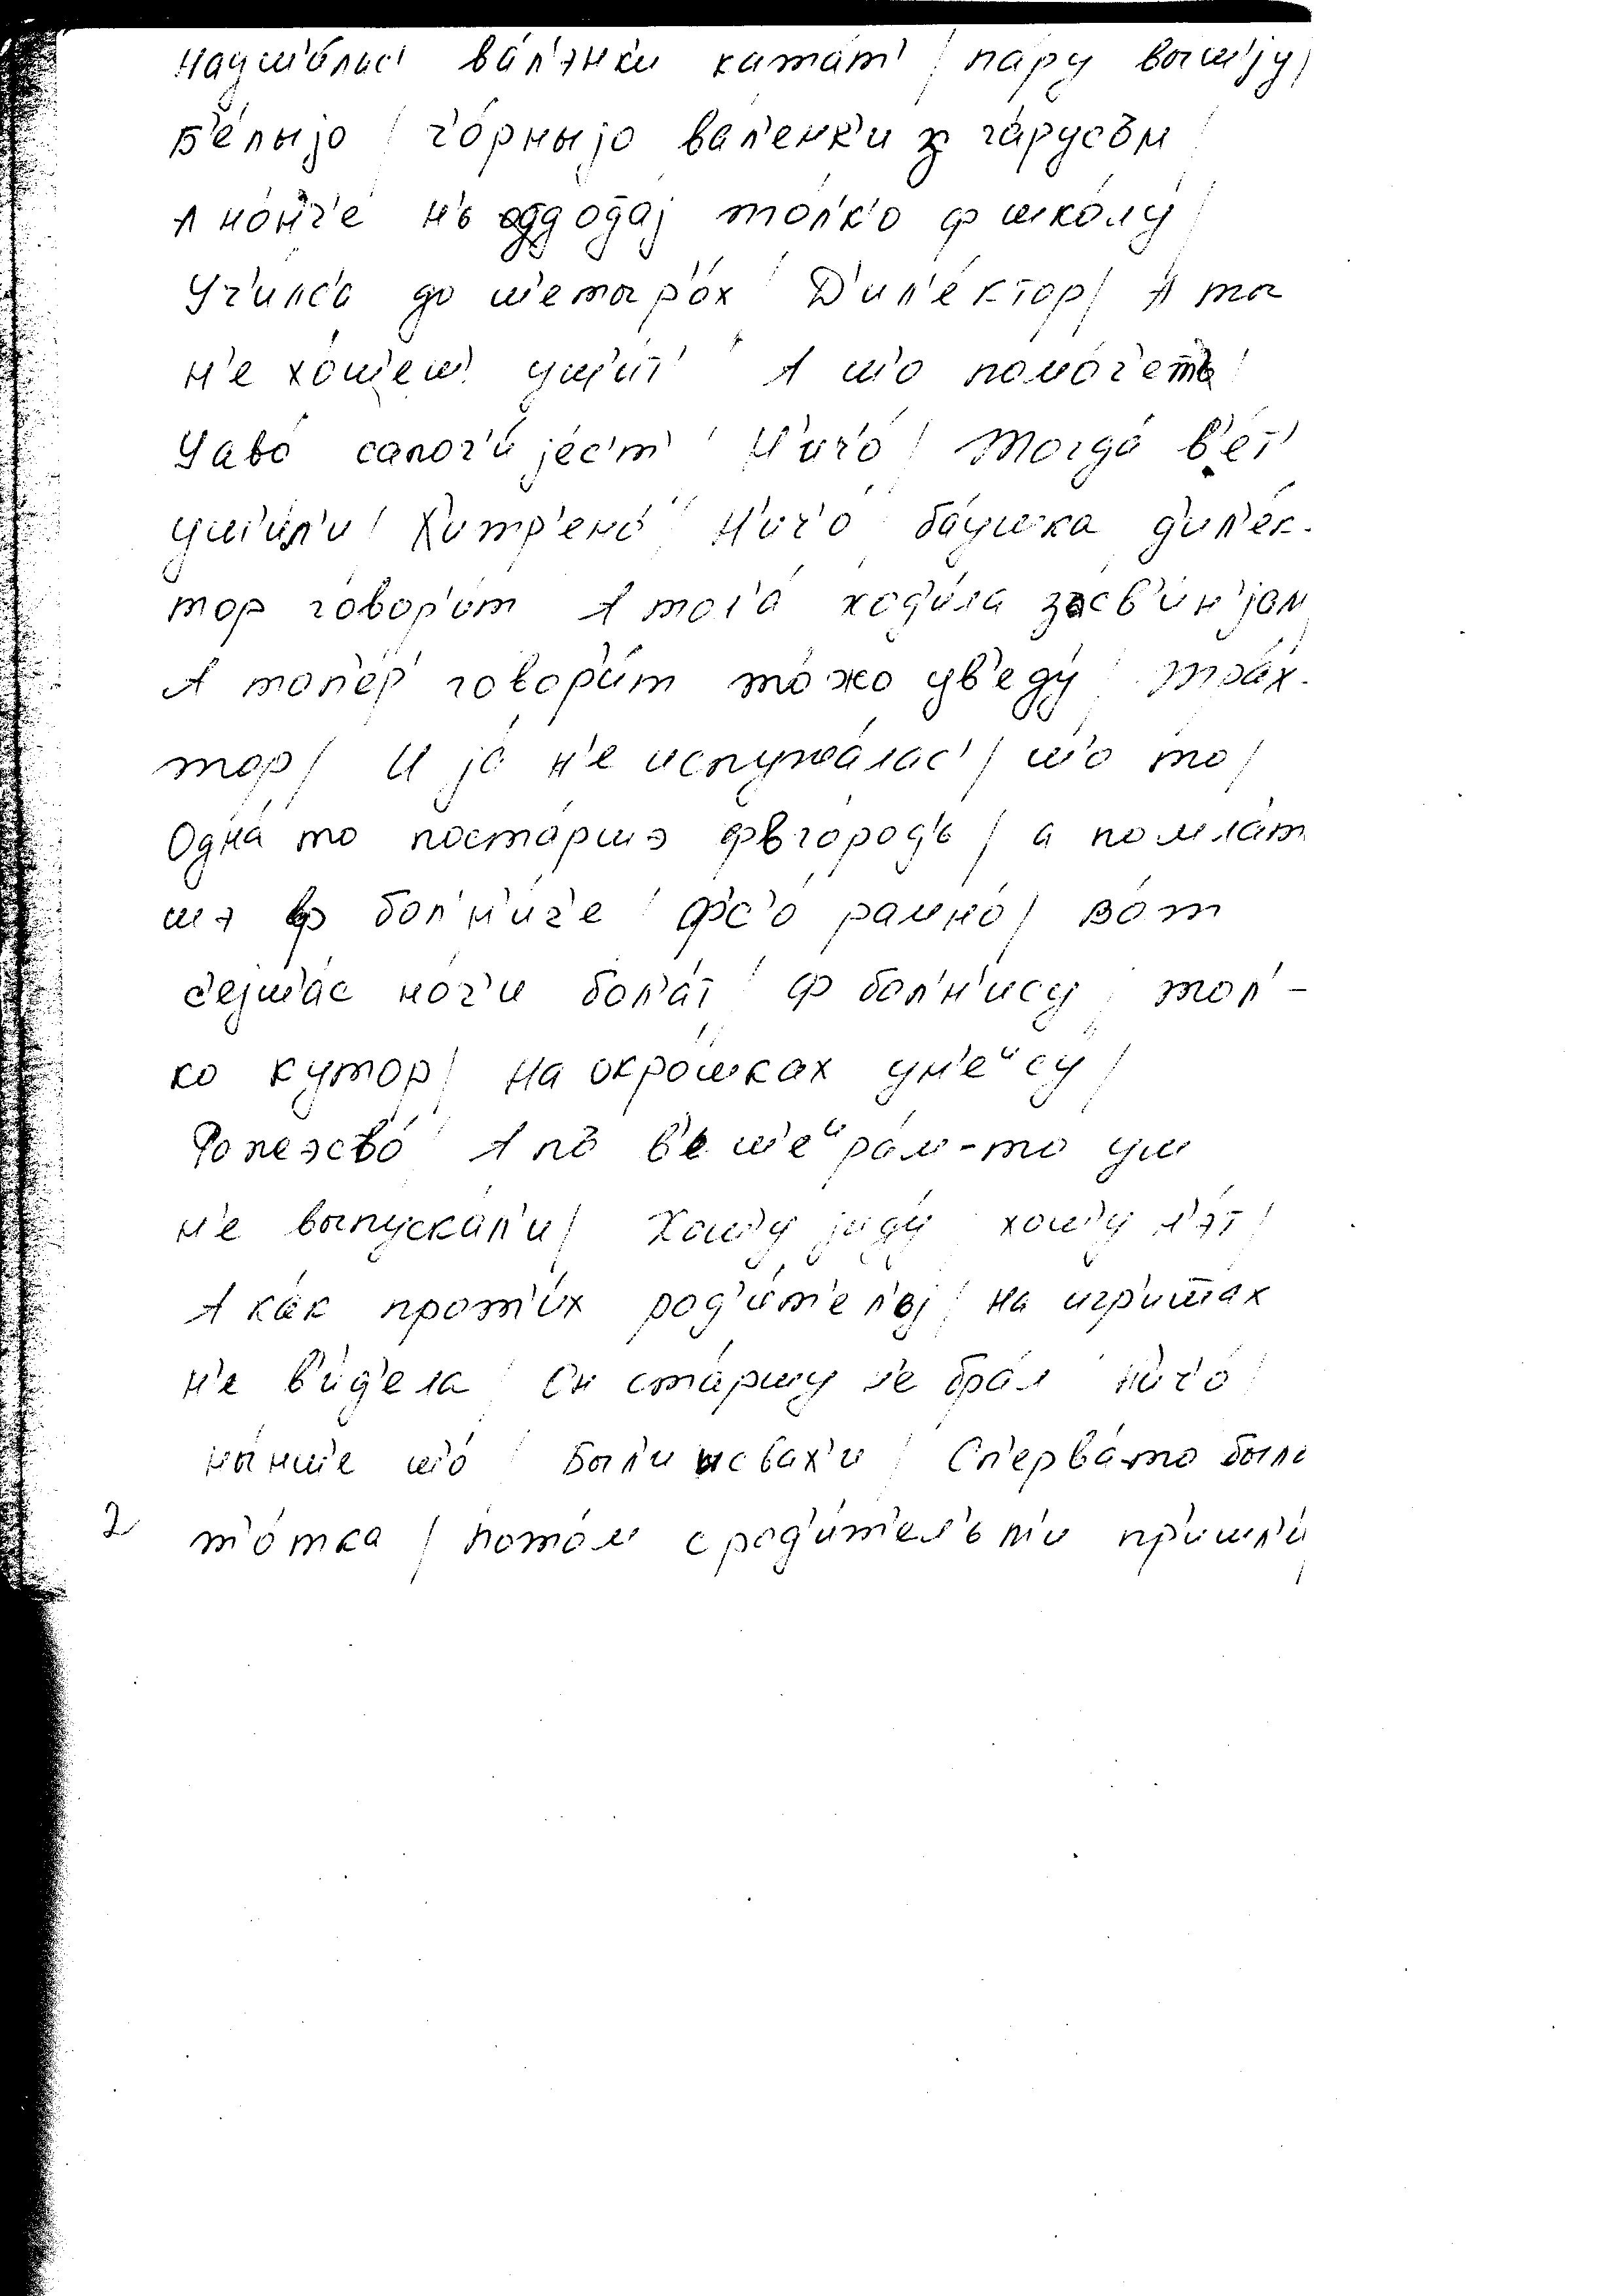 науш'а́лас' ва́л'энк'и ката́т' / па́ру выш'jу /
Б'е́лыjо / г'о́рныjо вал'енк'и з га́русъм /
А но́нг'е н'ь оддода́j тол'к'о ф шко́лу /
Уг'и́лс'а до ш'етыр'о́х / Д'ил'е́ктор / А ты
н'е хо́ш'еш' уш'и́т' / А ш'о помо́г'етъ /
Чаво́ сапог'и́ jе́с'т' / Н'иг'о́ / Тогда́ в'е́т'
уш'и́л'и / Х'итр'ено́ / Н'иг'о́ ба́ушка д'ил'е́к-
тор говор'и́т А тог'а́ ход'и́ла за св'и́н'jам /
А топ'е́р' говор'и́т то́жо ув'еду́ / тра́х-
тор / И jа́ н'е испужа́лас' / ш'о то /
Одна́ то поста́ршэ фвгородь / а помлат
шэ ф бол'н'и́г'е / Ф'с'о́ рамно́ / во́т
с'еjш'а́с но́г'и бол'а́т / Ф бол'н'ису / тол'-
ко кутор / на окро́шках ун'еису́ /
А пъ в'еш'еира́м-то уш
н'е выпуска́л'и / Хош'у jиду́ хош'у л'эт /
А ка́к прот'и́х род'и́т'ел'ej / на игр'ишах
н'е в'и́д'ела / Он ста́ршу н'е бра́л н'иг'о́ /
ны́нш'е ш'о́ / Были и свах'и / Сп'ерва́-то была
2 т'о́тка / пото́м с род'и́т'ел'ьм'и пр'ишл'и́ /